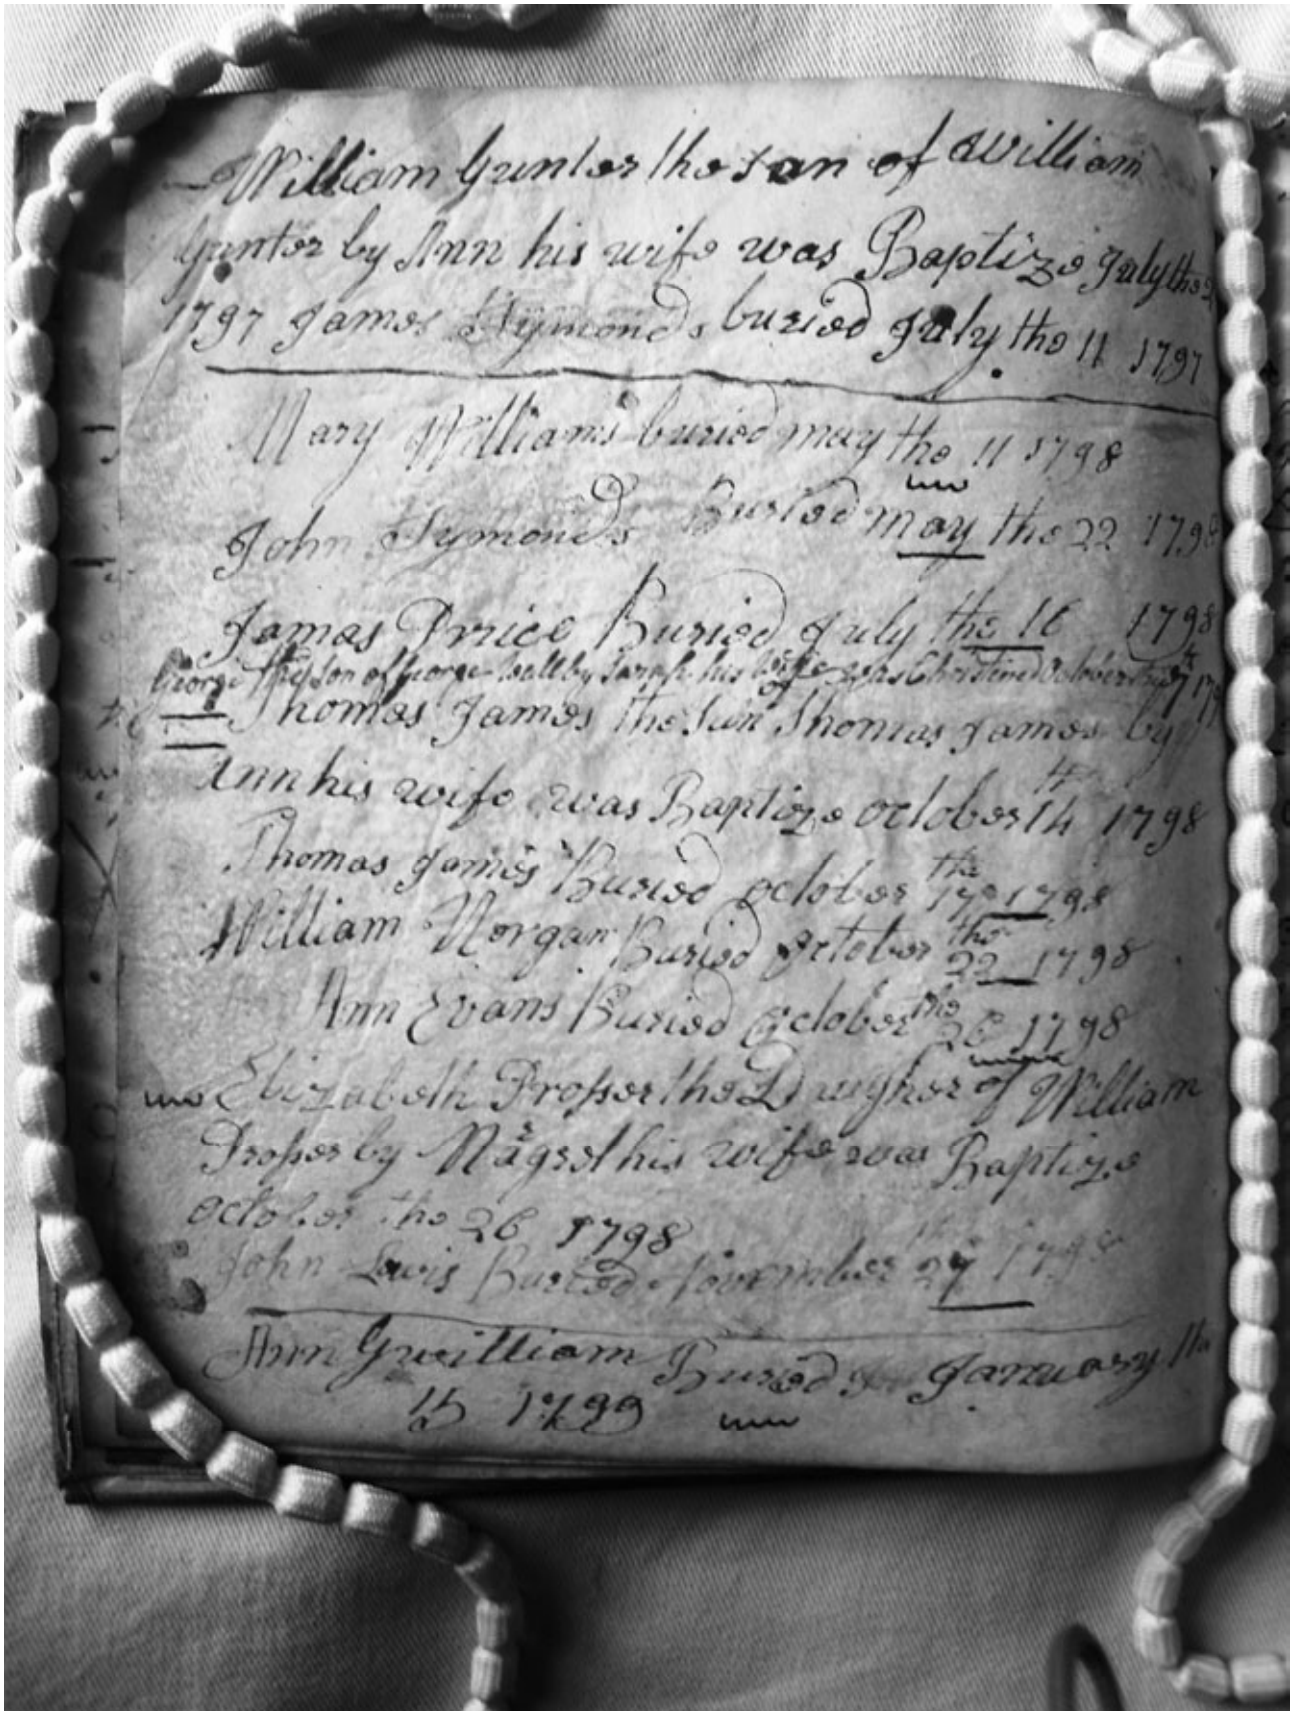 William Gunter the son of William
Gunter by Ann his wife was Baptize July the 2
1797 James Symonds buried July the 11 1797
Mary Williams buried may the 11 1798
John Symonds Buried may the 22 1798
James Price Buried July the 16 1798
George the son of George Wall by Sarah his wife was Christined October the 7
Thomas James the sun of Thomas James by
Ann his wife was Baptize october 14 1798
Thomas James Buried october the 17 1798
William Morgan Buried october the 22 1798
Ann Evans Buried October the 26 1798
Elizabeth Prosser the Daugher of William
Prosser by Margret his wife was Baptize
october the 26 1798
John Lewis Buried November 27 1798
Ann Gwilliam Buried January the
15 1799